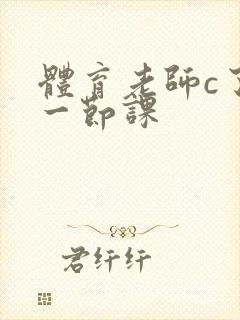 體育老師c了
一節課
君纤纤